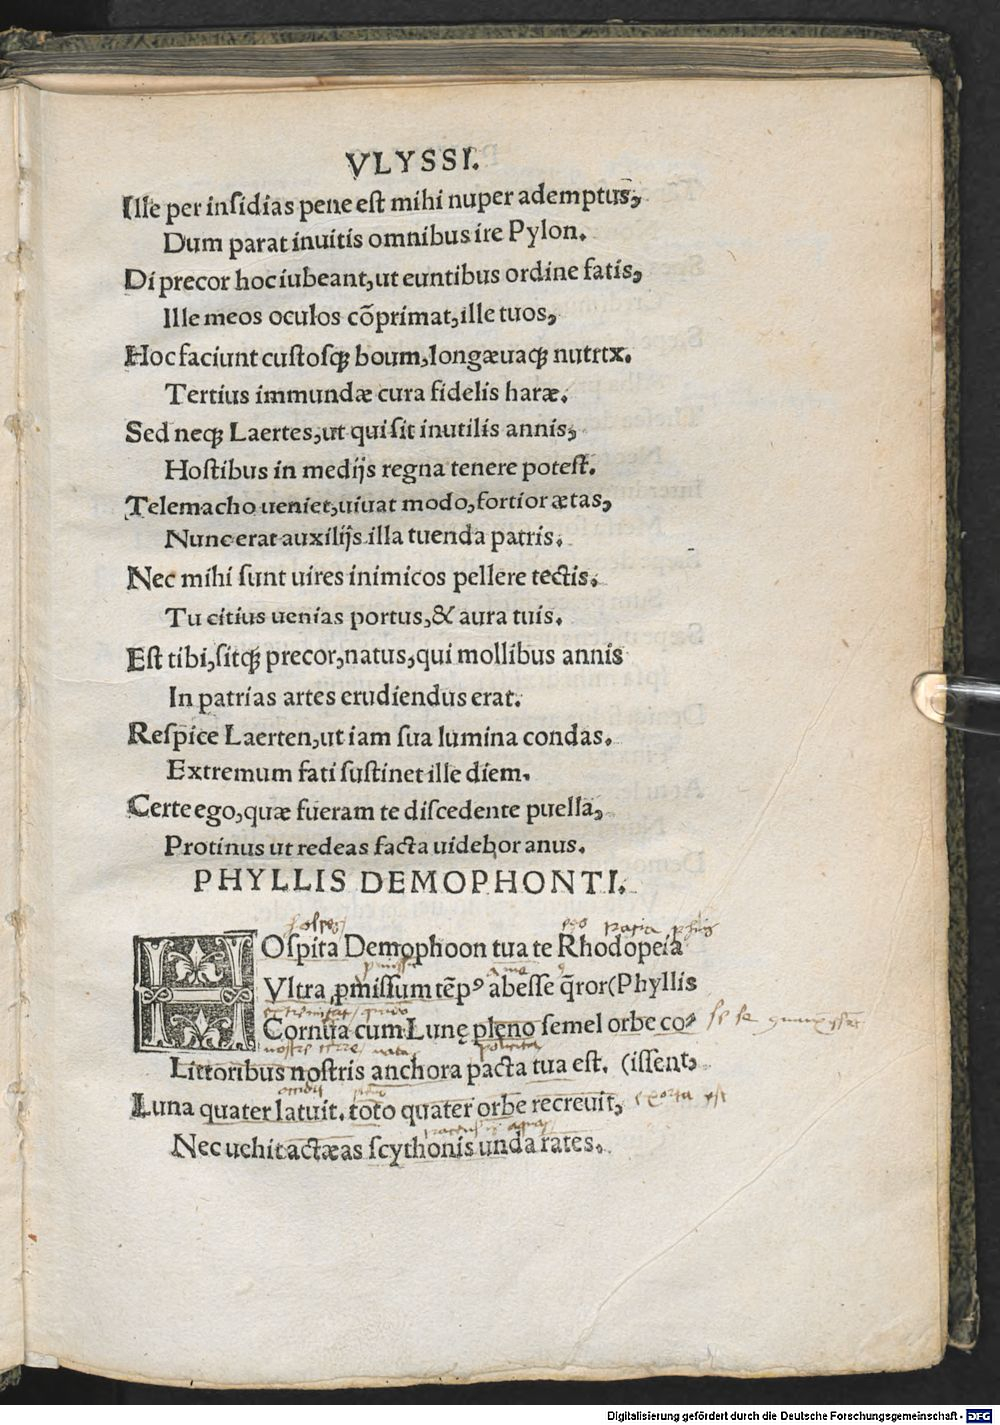 VLYSSI.
Ille per insidias pene est mihi nuper ademptus,
Dum parat inuitis omnibus ire Pylon.
Di precor hoc iubeant, ut euntibus ordine fatis,
Ille meos oculos cōprimat, ille tuos,
Hoc faciunt custosq; boum, longæuaq; nutrix.
Tertius immundæ cura fidelis haræ.
Sed neq; Laertes, ut qui sit inutilis annis,
Hostibus in medijs regna tenere potest.
Telemacho ueniet, uiuat modo, fortior ætas,
Nunc erat auxilijs illa tuenda patris.
Nec mihi sunt uires inimicos pellere tectis.
Tu citius uenias portus, & aura tuis.
Est tibi, sitq; precor, natus, qui mollibus annis
In patrias artes erudiendus erat.
Respice Laerten, ut iam sua lumina condas.
Extremum fati sustinet ille diem.
Certe ego, quæ fueram te discedente puella,
Protinus ut redeas facta uidebor anus.
PHYLLIS DEMOPHONTI.
HOspita Demophoon tua te Rhodopeia
Vltra ꝓmissum tēpꝰ abesse q̄ror (Phyllis
Cornua cum Lunę pleno semel orbe co-
Littoribus nostris anchora pacta tua est. (issent,
Luna quater latuit. toto quater orbe recreuit, exorta est
Nec uehit actæas scythonis unda rates.
Digitalisierung gefördert durch die Deutsche Forschungsgemeinschaft - DFG